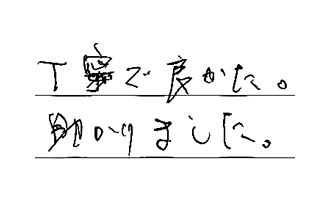 丁寧で良かた。
助かりました。